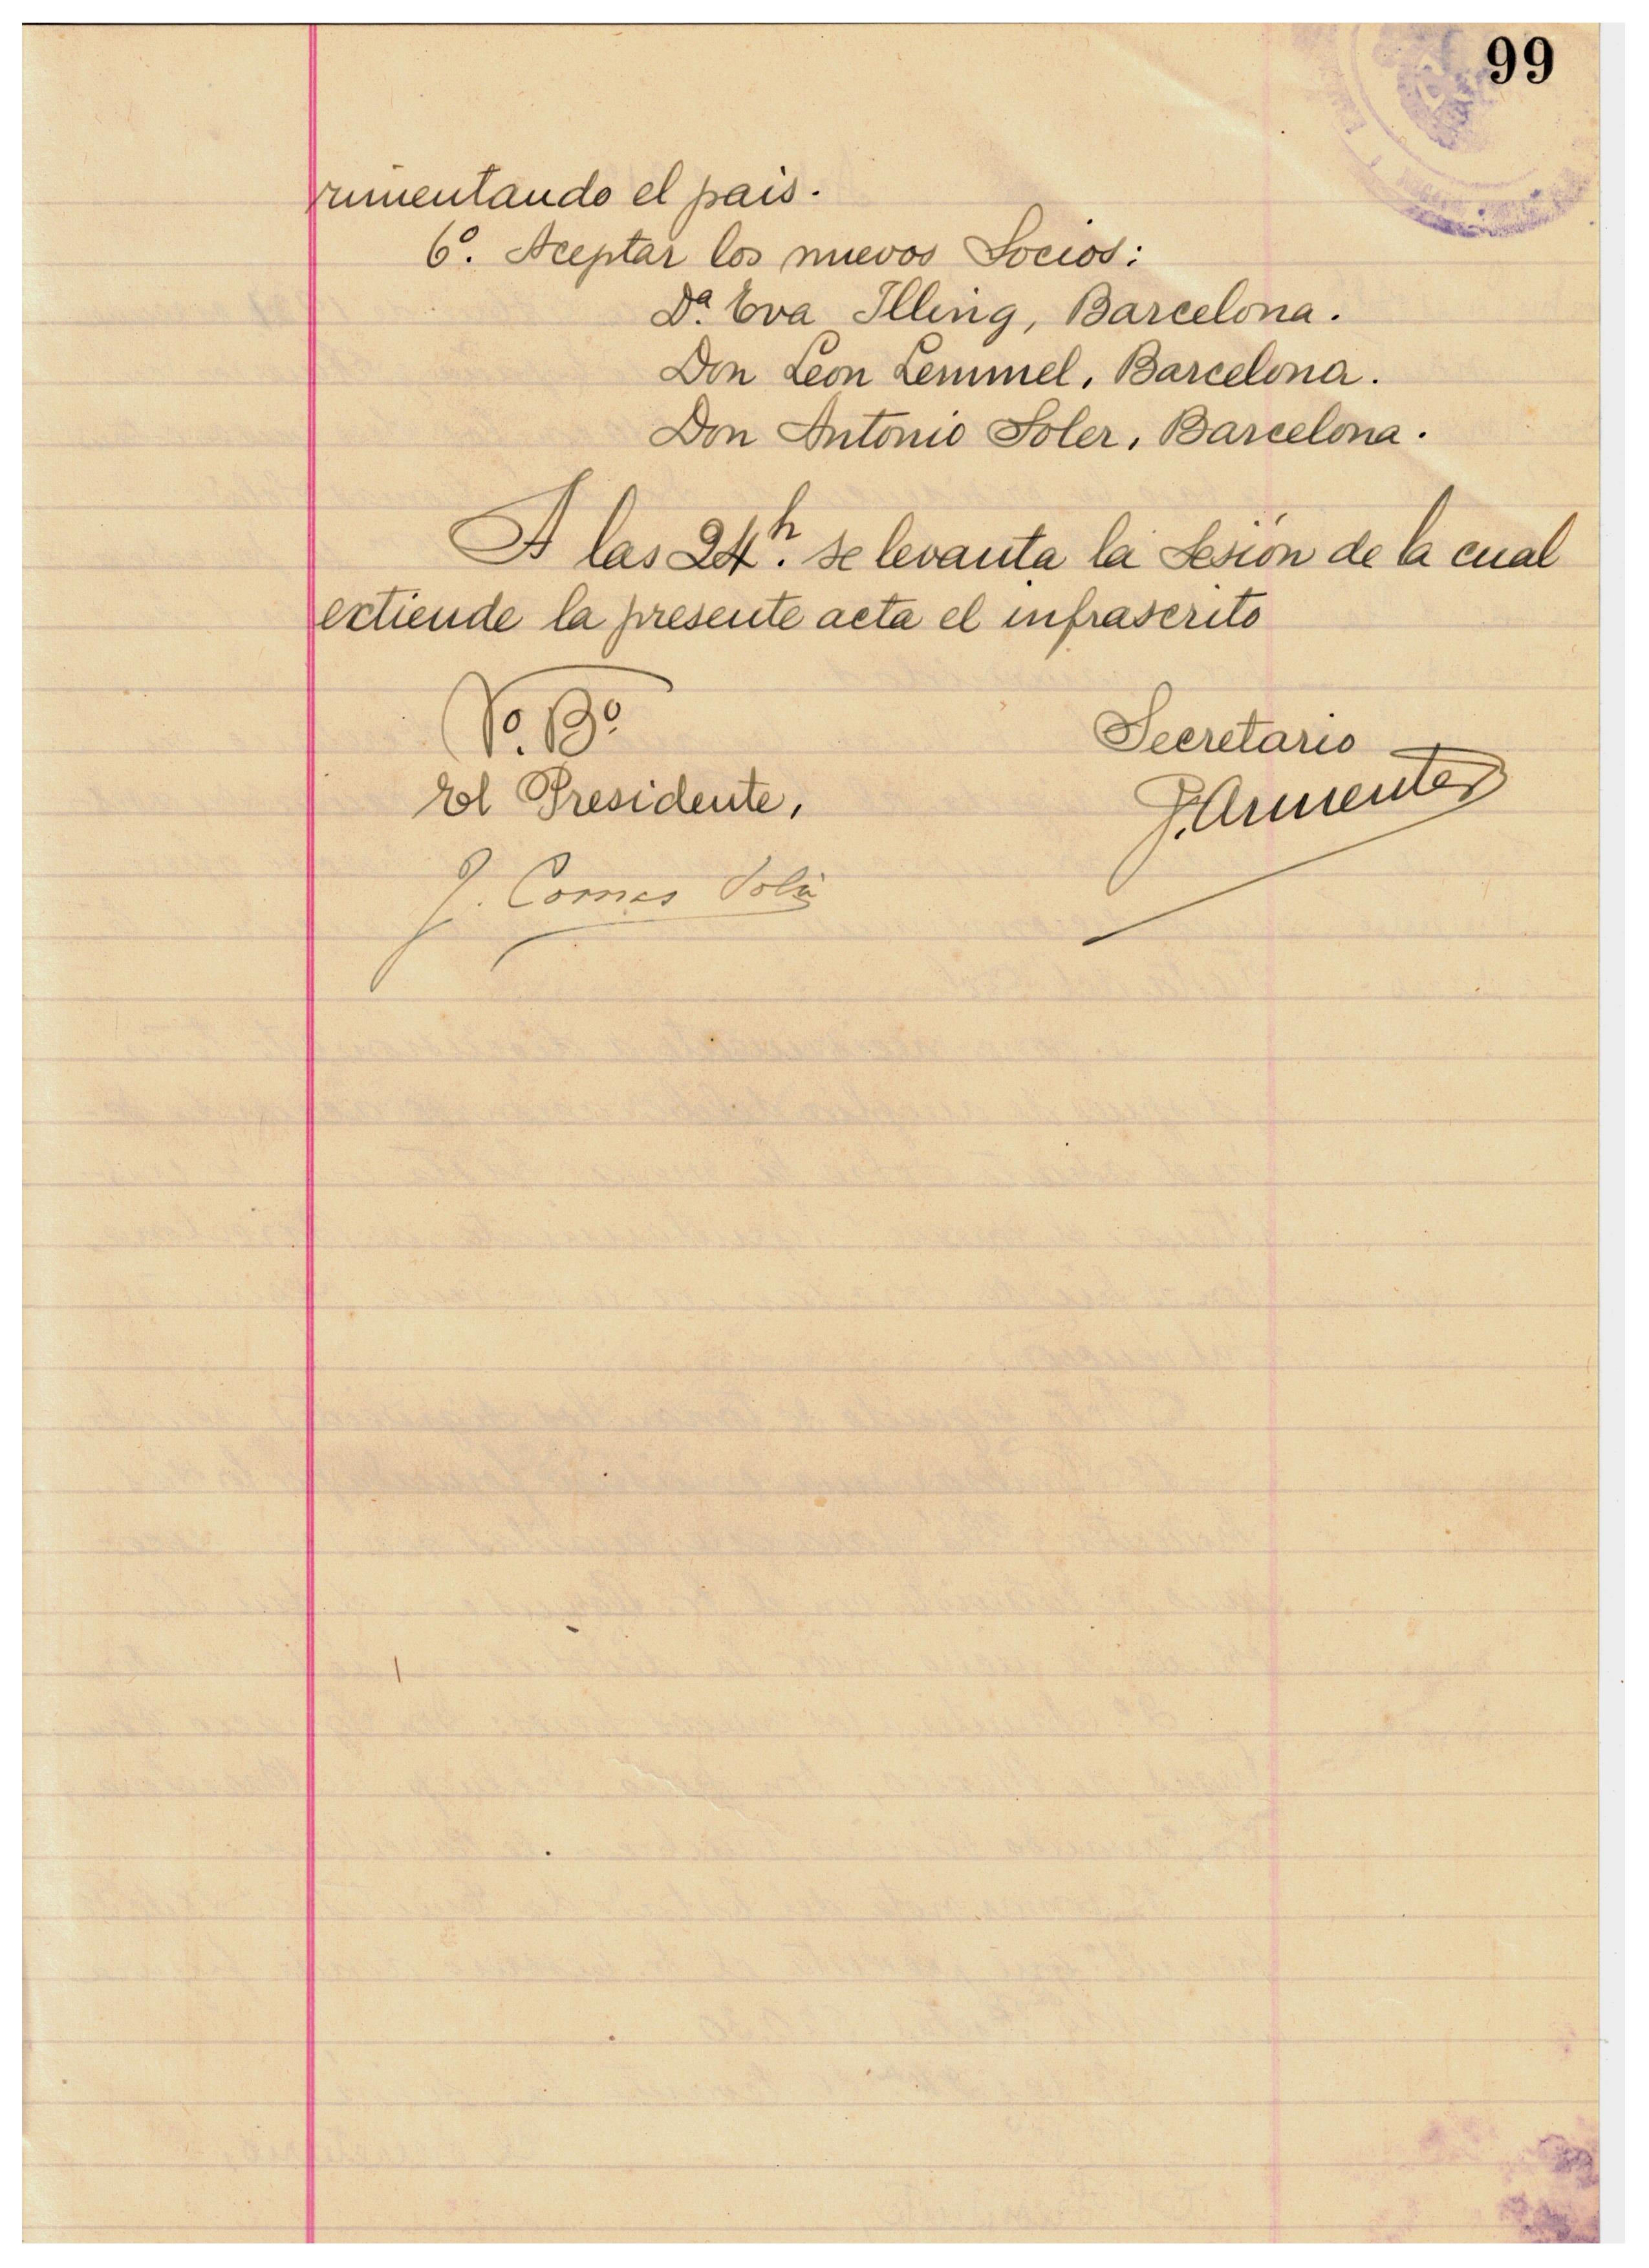 99
rimentando el pais.
6º. Aceptar los nuevos Socios:
Dª. Eva Illing, Barcelona.
Don Leon Lemmel, Barcelona.
Don Antonio Soler, Barcelona.
A las 24h. se levanta la Sesión de la cual
extiende la presente acta el infrascrito
Vº. Bº
El Presidente,
Secretario
J. Comas Solà
P. Armenter